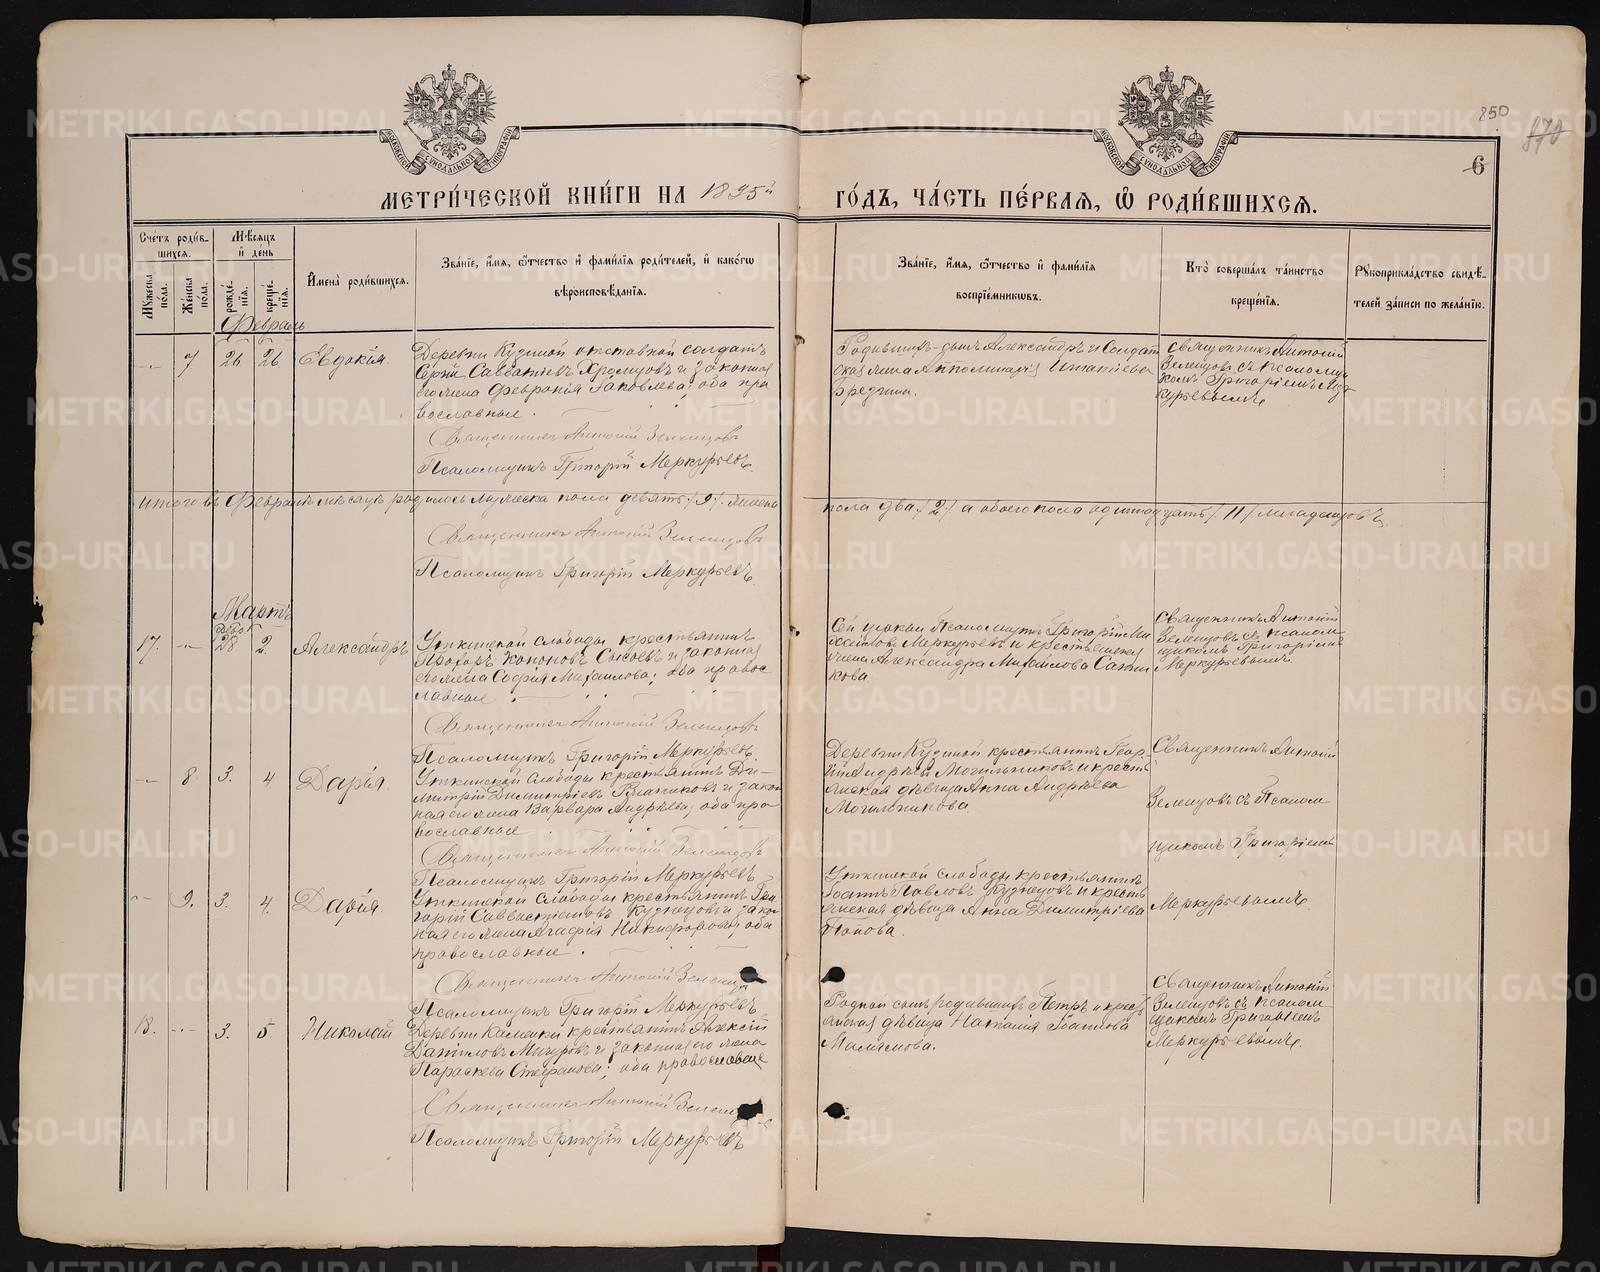 850
870
6
МОСКОВСКОЙ СѴНОДАЛЬНОЙ ТИПОГРАФІИ
МОСКОВСКОЙ СѴНОДАЛЬНОЙ ТИПОГРАФІИ
МЕТРИ́ЧЕСКОЙ КНИ́ГИ НА 1895й
ГО́ДЪ, ЧА́СТЬ ПЕ́РВАЯ, Ѽ РОДИ́ВШИХСЯ.
Сче́тъ роди́в-
шихся.
Мꙋ́жеска по́ла.
Же́нска по́ла.
Мѣ́сяцъ
и҆ де́нь
рожде́-
нїя.
креще́-
нїя.
И҆мена̀ роди́вшихся.
Зва́нїе, и҆́мя, ѻ҆́тчество и҆ фами́лїя роди́телей, и҆ како́гѡ
вѣроисповѣ́данїя.
Зва́нїе, и҆́мя, ѻ҆́тчество и҆ фами́лїя
воспрїе́мникѡвъ.
Кто̀ соверша́лъ та́инство
креще́нїя.
Рꙋкоприкла́дство свидѣ́-
телей за́писи по жела́нїю.
Февраль
7
26
26
Евдокія
Деревни Кудиной отставной солдатъ
Сергій Савватіевъ Хромцовъ и законная
его жена Февронія Іаковлева; оба пра
вославные.
Священникъ Антоній Земенцовъ
Псаломщикъ Григорій Меркурьевъ.
Родившаго сынъ Александръ и Солдат
ская жена Апполинарія Игнатіева
Священникъ Антоній
съ псаломщи
комъ Григоріемъ Мер
курьевымъ
Итого въ Февралѣ мѣсяцѣ родилось мужеска пола девять /9/. женска
пола два /2/ а обоего пола одиннадцать /11/ младенцовъ.
Священникъ Антоній
Псаломщикъ Григорій Меркурьевъ.
Мартъ
17.
28
2.
Александръ
Уткинской слободы крестьянинъ
Прохоръ Кононовъ Сысоевъ и законная
его жена Софія Михаилова; оба правос
лавные
Священникъ Антоній
Псаломщикъ Григорій Меркурьевъ
Сей церкви Псаломщикъ Григорій
Меркурьевъ и крестьянская
жена Александра Михаилова
Священникъ Антоній
съ псалом-
щикомъ Григоріемъ
Меркурьевымъ.
8.
3.
4.
Дарія.
Уткинской слободы крестьянинъ Ди-
митрій Димитріевъ и закон
ная его жена Варвара Андрѣева; оба пра
вославные
Священникъ Антоній
Псаломщикъ Григорій Меркурьевъ
Деревни Кудиной крестьянинъ Геор
гій Андрѣевъ Могильниковъ и кресть
янская дѣвица Анна Андрѣева
Могильникова
Священникъ Антоній
съ Псалом
щикомъ Григоріемъ
Меркурьевымъ.
9.
3.
4.
Дарія.
Уткинской слободы крестьянинъ Гри
горій Кузнецовъ и закон
ная его жена Агафія Никифорова; оба
православные.
Священникъ Антоній
Псаломщикъ Григорій Меркурьевъ
Уткинской слободы крестьянинъ
Іоаннъ Павловъ Кузнецовъ и кресть
янская дѣвица Анна Димитріева
Попова.
18.
3.
5.
Николай
Деревни Каменки крестьянинъ Алексій
Даниловъ Мичуровъ и законная его жена
Параскева Стефанова; оба православные
Священникъ Антоній
Псаломщикъ Григорій Меркурьевъ
Родной сынъ родившаго Петръ и крест
янская дѣвица Наталія Іоаннова
Мамямова.
Священникъ Антоній
съ псалом-
щикомъ Григоріемъ
Меркурьевымъ.
METRIKI.GASO-URAL.RU